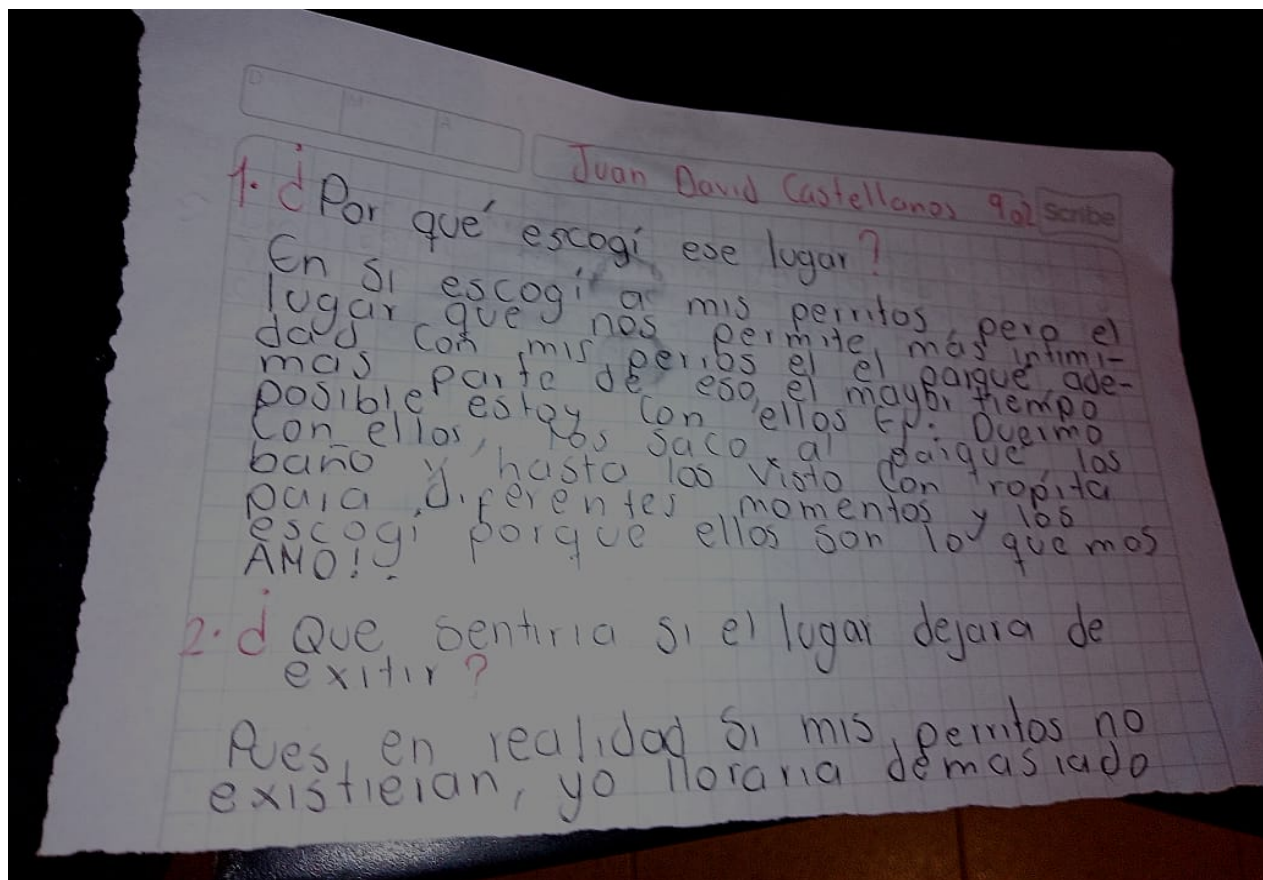 D M A
Juan David Castellanos 902 Scribe
1. ¿Por qué escogí ese lugar?
En si escogi a mis perritos, pero el
lugar que nos permite mas intimi-
dad con mis perritos el el parque, ade-
mas parte de eso, el mayor tiempo
posible estoy con ellos EP: Duermo
con ellos, los saco al parque, los
baño y hasta los visto con ropita
para diferentes momentos y los
escogi porque ellos son lo que mas
AMO!!
2. ¿Que sentiria si el lugar dejara de
exitir?
Pues, en realidad si mis perritos no
existieran, yo lloraria demasiado